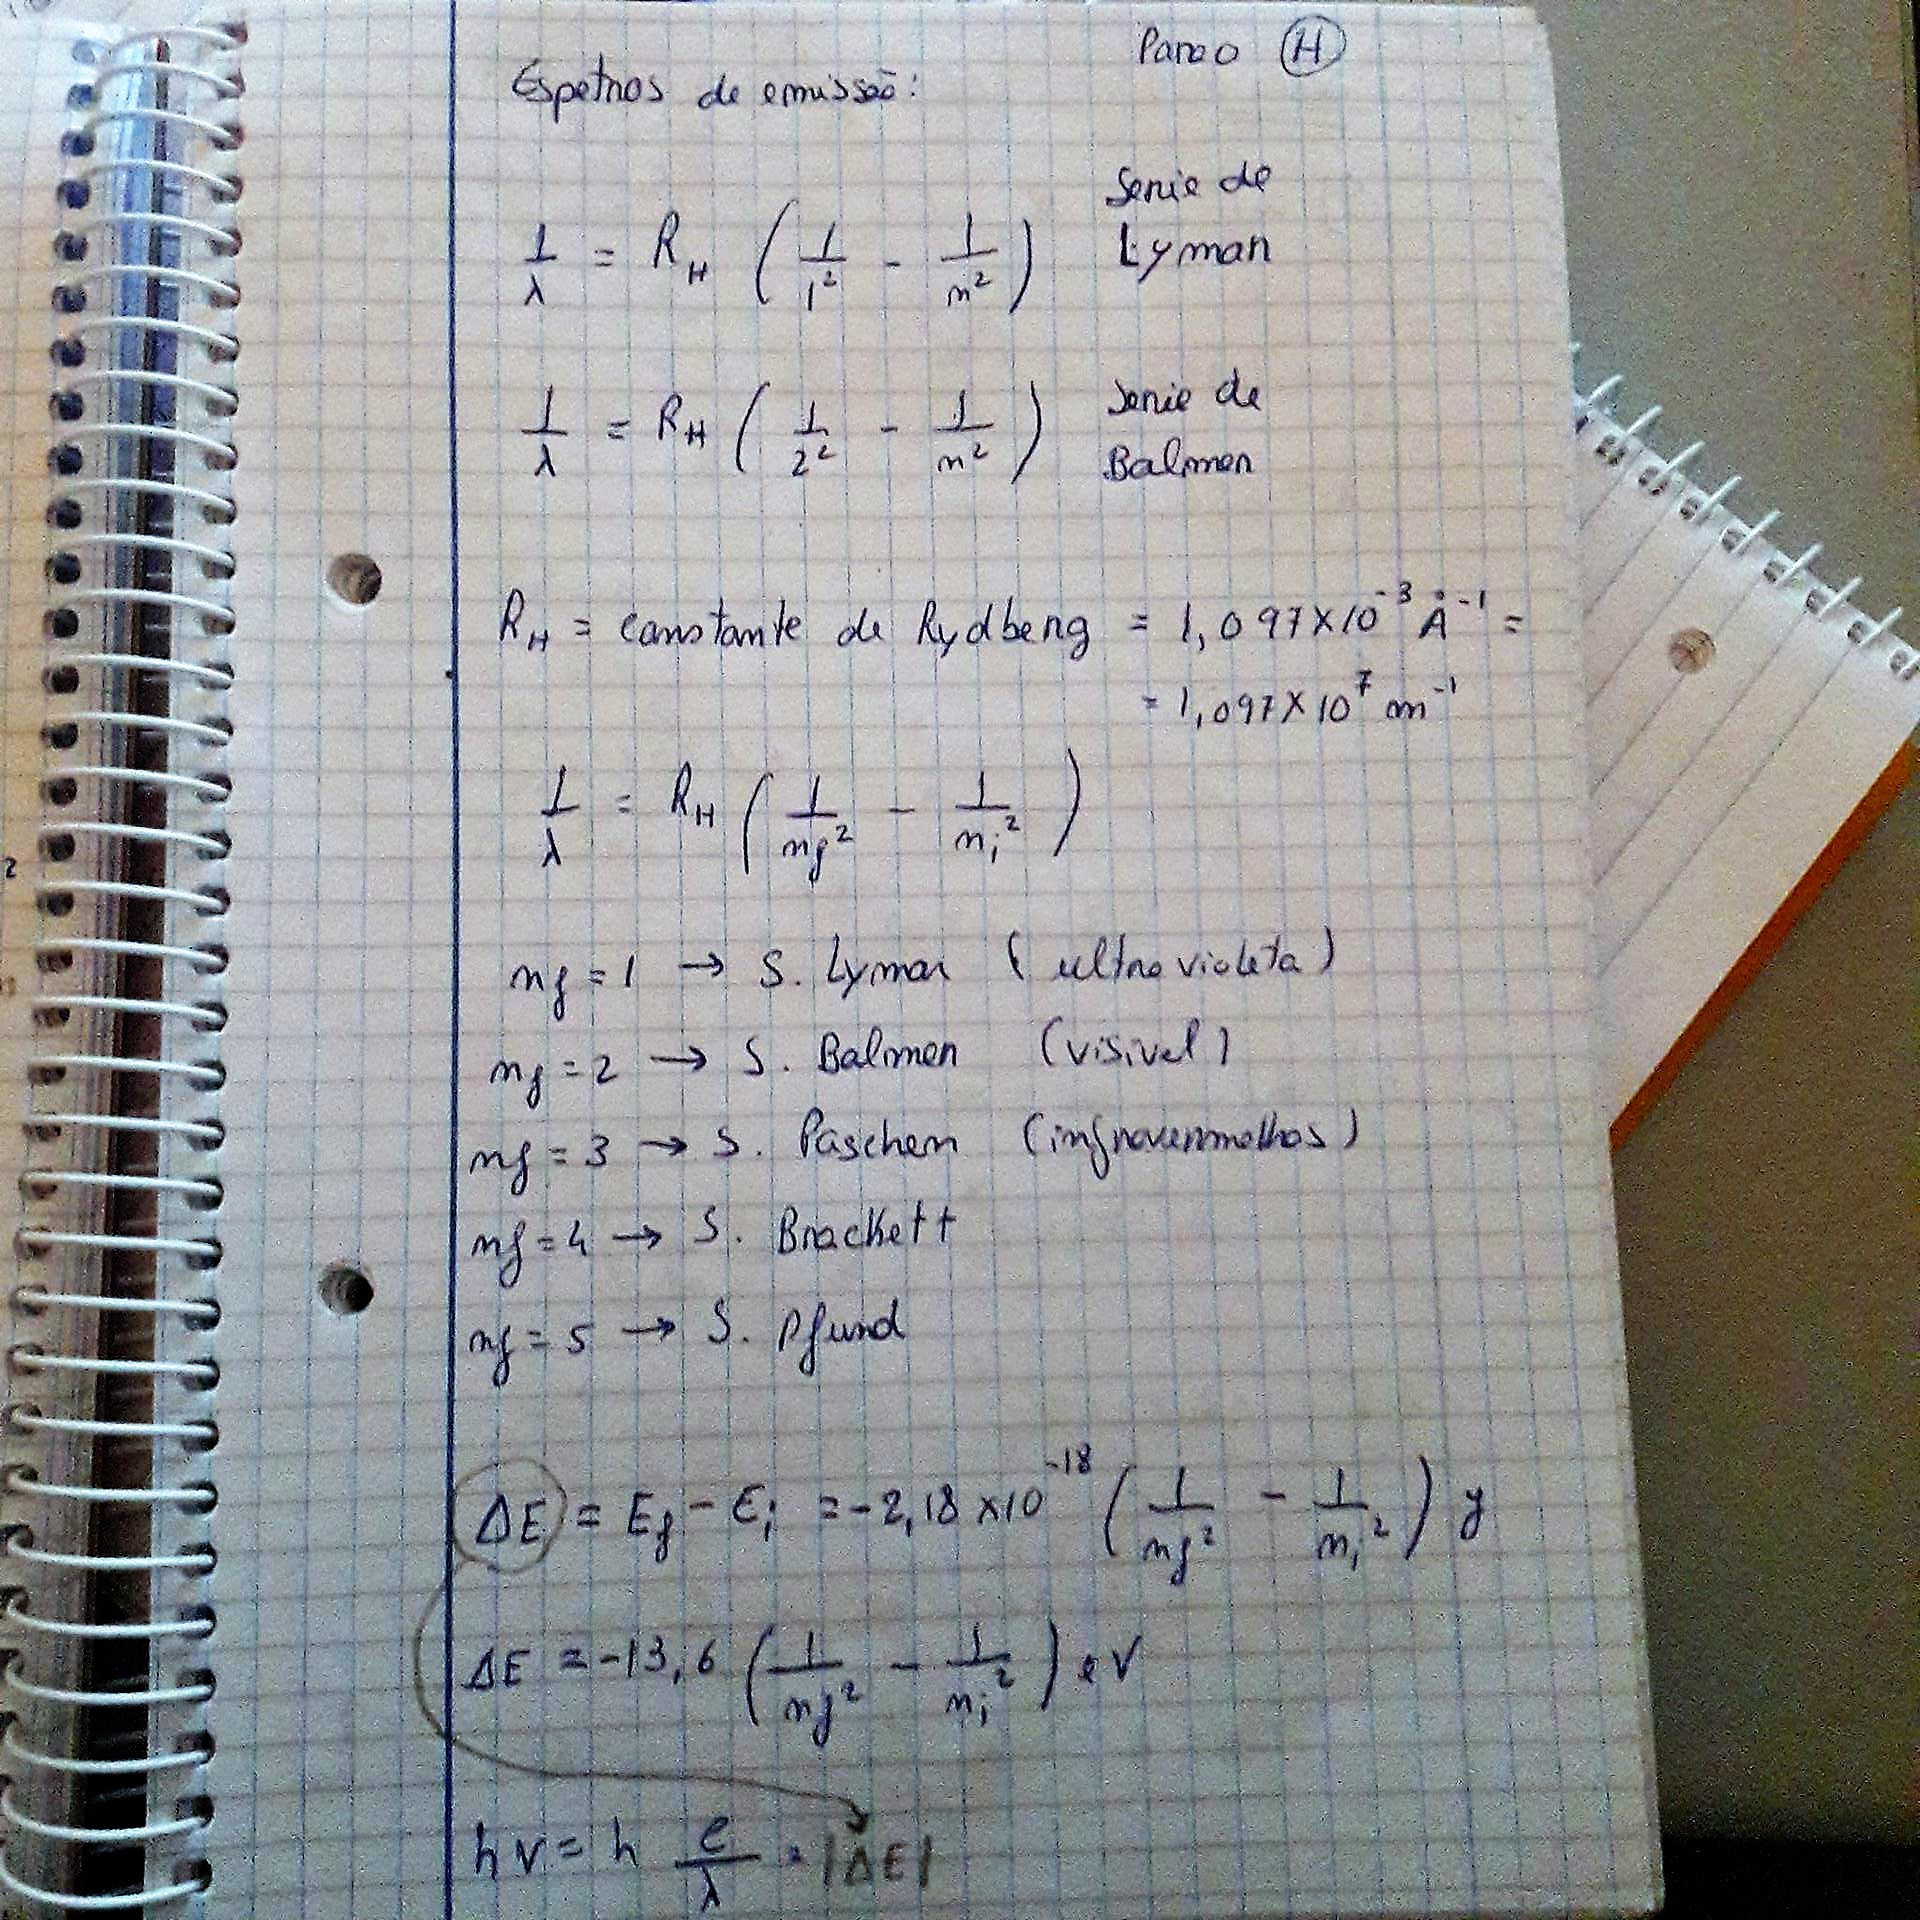 Para o (H)
Espetros de emissão:
1/λ = R_H (1/1² - 1/n²) Serie de Lyman
1/λ = R_H (1/2² - 1/n²) Serie de Balmer
R_H = constante de Rydberg = 1,097×10⁻³ Å⁻¹ =
= 1,097×10⁷ m⁻¹
1/λ = R_H (1/nf² - 1/ni²)
nf = 1 → S. Lyman (ultravioleta)
nf = 2 → S. Balmer (visivel)
nf = 3 → S. Paschen (infravermelhos)
nf = 4 → S. Brackett
nf = 5 → S. Pfund
ΔE = Ef - Ei = -2,18×10⁻¹⁸ (1/nf² - 1/ni²) J
ΔE = -13,6 (1/nf² - 1/ni²) eV
hν = h c/λ = |ΔE|